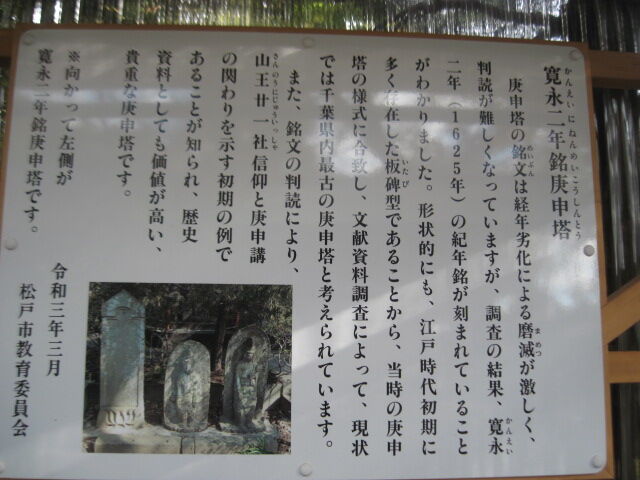 寛永二年銘庚申塔
かんえいにねんめいこうしんとう
庚申塔の銘文は経年劣化による磨滅が激しく、
めいぶん
まめつ
判読が難しくなっていますが、調査の結果、寛永
かんえい
二年（１６２５年）の紀年銘が刻まれていること
がわかりました。形状的にも、江戸時代初期に
多く存在した板碑型であることから、当時の庚申
いたび
塔の様式に合致し、文献資料調査によって、現状
では千葉県内最古の庚申塔と考えられています。
また、銘文の判読により、
山王廿一社信仰と庚申講
さんのうにじゅういっしゃ
の関わりを示す初期の例で
あることが知られ、歴史
資料としても価値が高い、
貴重な庚申塔です。
※向かって左側が
寛永二年銘庚申塔です。
令和三年三月
松戸市教育委員会